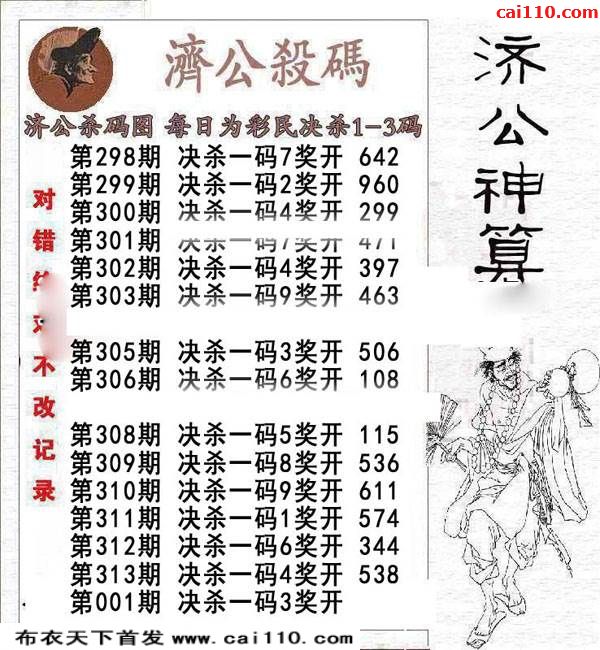 cai110.com
濟公殺碼
济公杀码图 每日为彩民决杀1-3码
第298期 决杀一码7奖开 642
第299期 决杀一码2奖开 960
第300期 决杀一码4奖开 299
第301期 决杀一码7奖开 471
第302期 决杀一码4奖开 397
第303期 决杀一码9奖开 463
第305期 决杀一码3奖开 506
第306期 决杀一码6奖开 108
第308期 决杀一码5奖开 115
第309期 决杀一码8奖开 536
第310期 决杀一码9奖开 611
第311期 决杀一码1奖开 574
第312期 决杀一码6奖开 344
第313期 决杀一码4奖开 538
第001期 决杀一码3奖开
对错不改记录
济公神算
布衣天下首发 www.cai110.com